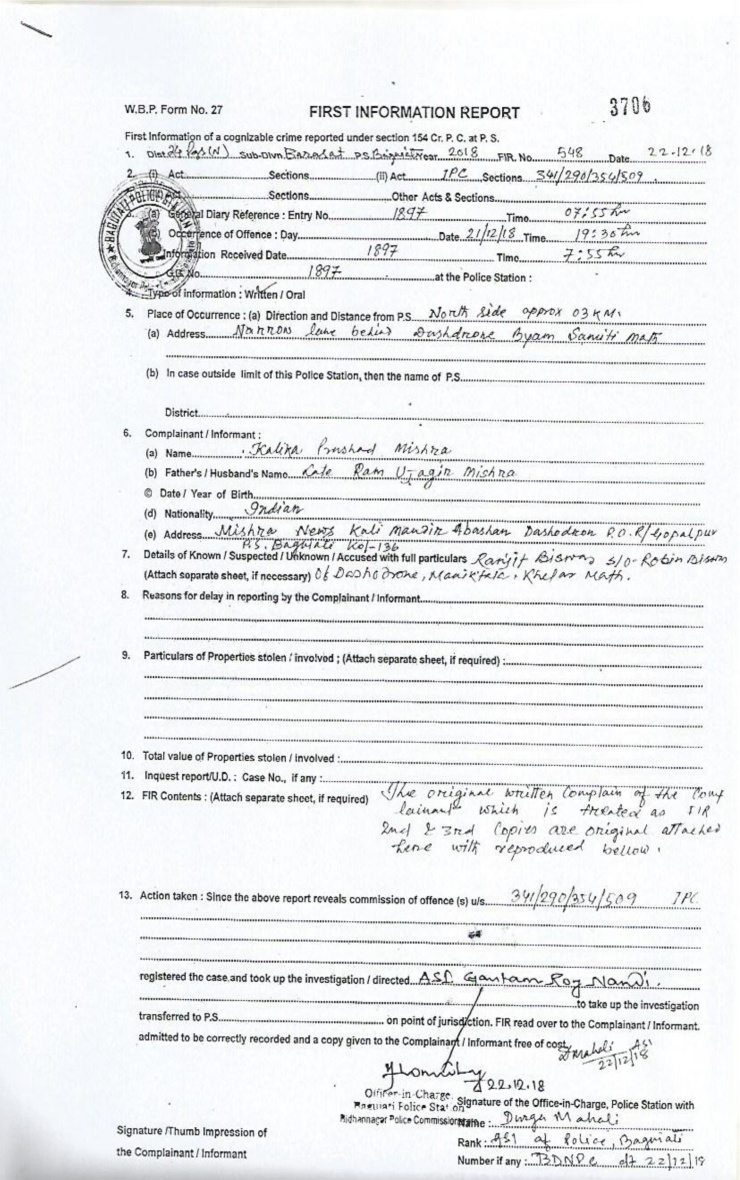 3706
W.B.P. Form No. 27 FIRST INFORMATION REPORT
First Information of a cognizable crime reported under section 154 Cr. P. C. at P. S.
1. Dist 24 Pgs (N) Sub-Divn. Barasat P.S. Baguiati Year 2018 FIR. No. 548 Date 22-12-18
2. (i) Act Sections (ii) Act IPC Sections 341/290/354/509.
Sections Other Acts & Sections
(a) General Diary Reference : Entry No. 1897 Time 07:55 hr
Occurrence of Offence : Day Date 21/12/18 Time 19:30 hr
Information Received Date 1897 Time 7:55 hr
No. 1897 at the Police Station :
Type of information : Written / Oral
BAGUIATI POLICE STATION
5. Place of Occurrence : (a) Direction and Distance from P.S. North side approx 03 KM.
(a) Address Narrow lane behind Dashdrone Byam Samiti Math
(b) In case outside limit of this Police Station, then the name of P.S.
District
6. Complainant / Informant :
(a) Name Kalika Prashad Mishra
(b) Father's / Husband's Name Late Ram Ujagir Mishra
© Date / Year of Birth
(d) Nationality Indian
(e) Address Mishra News Kali Mandir Abashan Dashodron P.O. R/Gopalpur
P.S. Baguiati Kol-136
7. Details of Known / Suspected / Unknown / Accused with full particulars Ranjit Biswas s/o- Robin Biswas
(Attach soparate sheet, if necessary) Of Dashodrone, Maniktala, Khelar Math.
8. Reasons for delay in reporting by the Complainant / Informant
9. Particulars of Properties stolen / involved ; (Attach separate sheet, if required) :
10. Total value of Properties stolen / involved :
11. Inquest report/U.D. : Case No., if any :
12. FIR Contents : (Attach separate sheet, if required) The original written Complain of the Comp
lainant which is treated as FIR
2nd & 3rd Copies are original attached
here with reproduced bellow.
13. Action taken : Since the above report reveals commission of offence (s) u/s. 341/290/354/509 IPC
registered the case and took up the investigation / directed ASI Gautam Roy Nandi.
to take up the investigation
transferred to P.S. on point of jurisdiction. FIR read over to the Complainant / Informant.
admitted to be correctly recorded and a copy given to the Complainant / Informant free of cost.
DMahali ASI
22/12/18
22.12.18
Officer-in-Charge
Baguiati Police Station Signature of the Office-in-Charge, Police Station with
Bidhannagar Police Commissionerate Name : Durga Mahali
Signature /Thumb Impression of Rank : ASI of Police, Baguiati
the Complainant / Informant Number if any : BDNPC dt 22/12/18